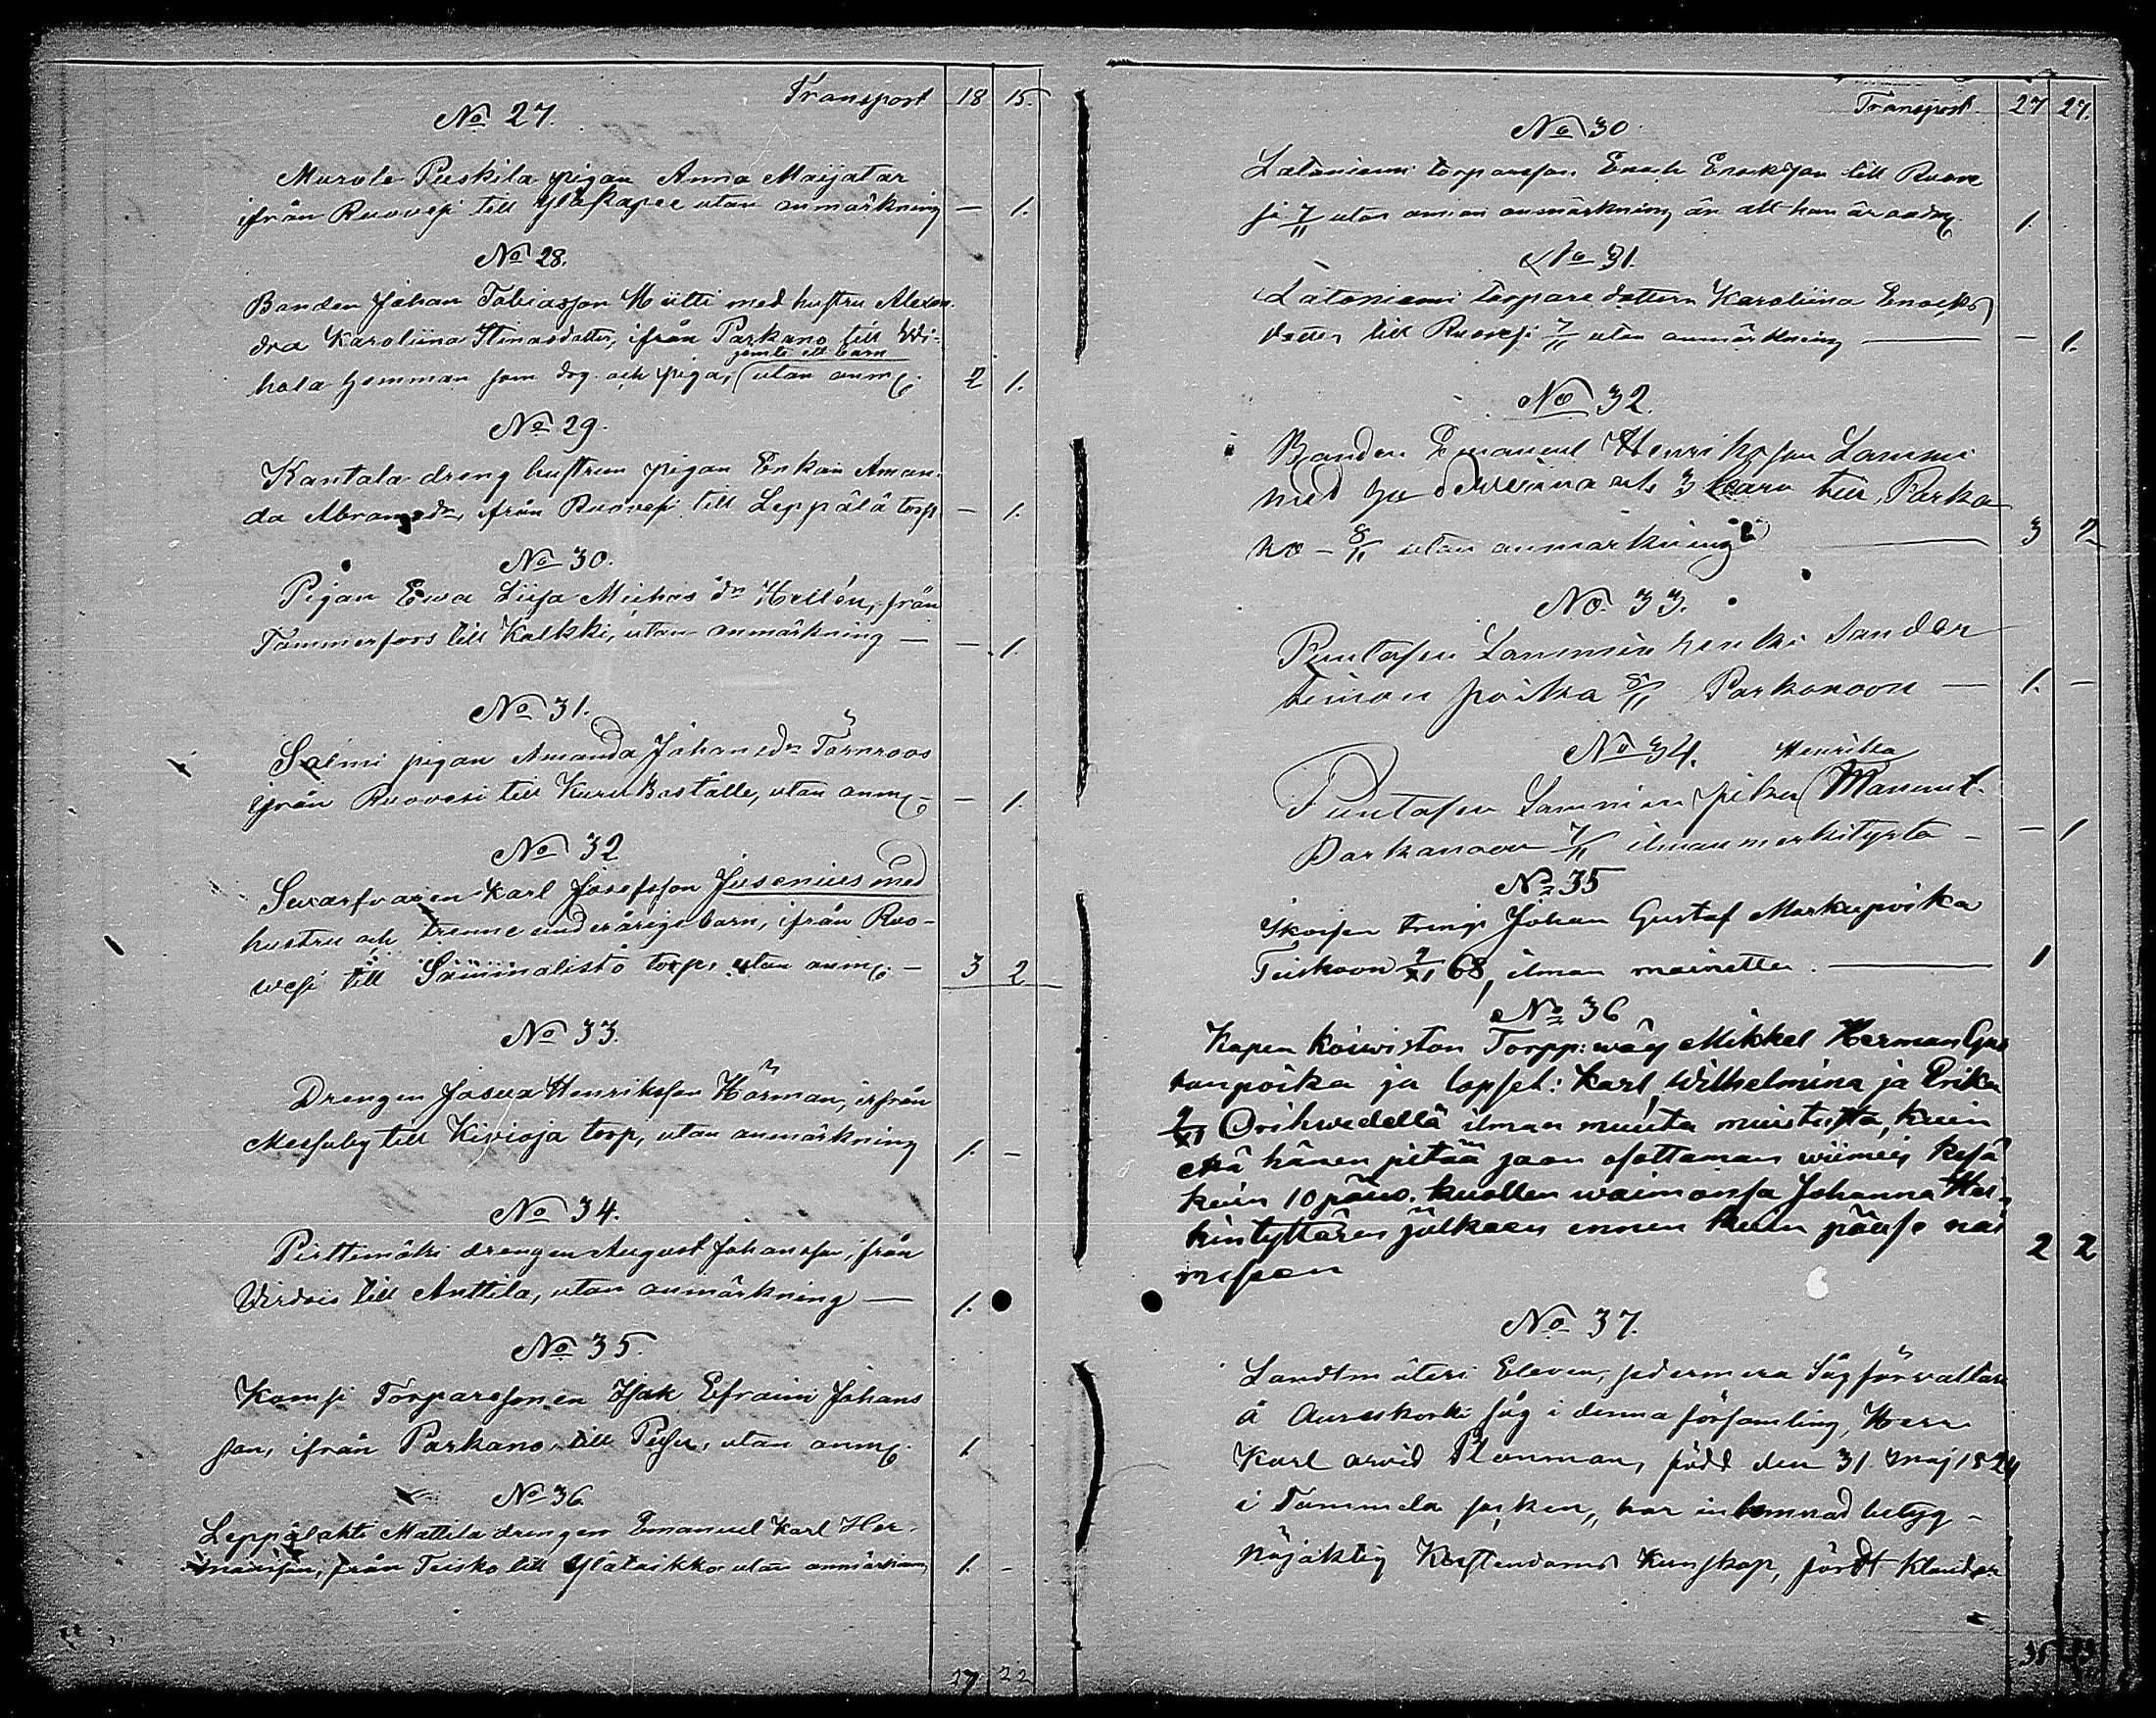 Transport 18 15.
No 27.
Murole Puskila pigan Anna Maijatar
ifrån Ruovesi till Yläkapee utan anmärkning — 1.
No 28.
Bonden Johan Tobiasson Mütti med hustru Alexan-
dra Karoliina Stinasdotter, ifrån Parkano till Wi-
jemte ett barn
hola hemman som drg. och piga, utan anm. 2 1.
No 29.
Kantala dreng hustrun pigan Enkan Aman-
da Abramsdr, från Ruovesi till Leppälä torp — 1.
No 30.
Pigan Ewa Liisa Michas dr Hellén, från
Tammerfors till Kalkki, utan anmärkning — — 1.
No 31.
Salmi pigan Amanda Johansdr Törnroos
ifrån Ruovesi till Kuru Boställe, utan anm. — — 1.
No 32
Swarfvaren Karl Josefsson Jusenius med
hustru och trenne underårige barn, ifrån Ruo-
wesi till torp, utan anm. — 3 2
No 33.
Drengen Josua Henriksson Hörman, ifrån
Messuby till Kivioja torp, utan anmärkning 1. -
No 34.
Pirttimäki drengen August Johansson, från
Virdois till Anttila, utan anmärkning — 1.
No 35.
Kamsi Torparesonen Isak Efraim Johans
son, ifrån Parkano till Pusu, utan anm. 1
No 36.
Leppälahti Mattila drengen Emanuel Karl Her-
mansson, från Teisko till Ylätaikko utan anmärkning 1. -
27 22
Transport 27 27.
No 30.
Latoniemi torpareson Enoch Enoksson till Ruove
si 7/11 utan annan anmärkning än att han är 1.
No 31.
Latoniemi torpare dottern Karoliina Enocks
dotter till Ruovesi 7/11 utan anmärkning — — 1.
No 32.
Bonden Emanuel Henriksson Lammi
med hu och 3 barn till Parka
no - 8/11 utan anmärkning — 3 2
No. 33.
Puntasen Lammin renki Sander
Simon poika 8/11 Parkanoon — 1. —
No 34. Henrika
Puntasen Lammin piika Manuel-
Parkanoon 7/11 ilman merkitystä — — 1
No 35
Skoisen trengi Johan Gustaf Markupoika
Teiskoon 9/XI 68, ilman mainetta. — 1
No 36
Kapen Koiwiston Torpp: wäg Mikkel Herman Gus
tanpoika ja lapset: Karl, Wilhelmina ja Erika
9/XI Orihwedellä ilman muuta muistutusta, kuin
että hänen pitää jaon osottaman wiimeis kesä
kuun 10 päiw. kuollen waimonsa Johanna Hei-
kintyttären jälkeen ennen kuin pääse nai
miseen 2 2
No 37.
Landtmäteri Eleven, sedermera Sågförvaltare
å Aureskoski såg i denna församling, Herr
Karl Arvid Planman, född den 31 Maj 1824
i Tammela socken, har inlemnad betyg -
nöjaktig Kristendoms Kunskap, fördt klander
35 33